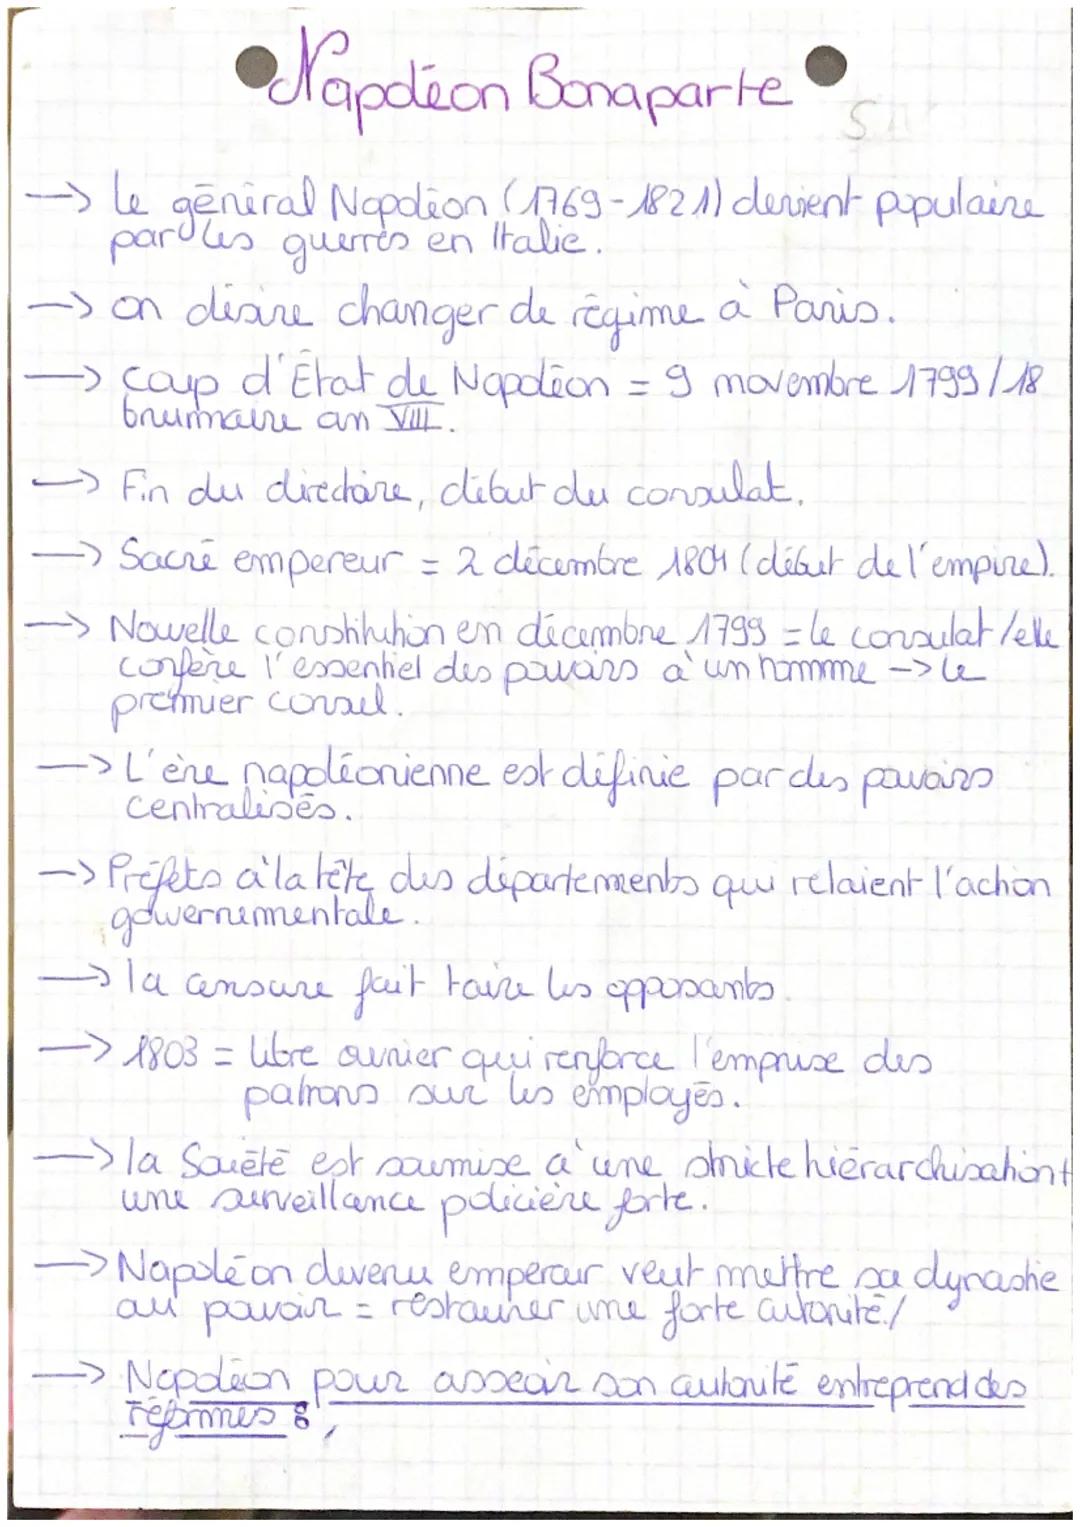 Napoléon Bonaparte
→ Le général Napoléon (1769-1821) devient populaire
par les guerres en Italie.
→ on désire changer de régime à Paris.
→ coup d'État de Napoléon = 9 novembre 1799/18
brumaire an VIII.
→ Fin du directoire, début du consulat.
→ Sacré empereur = 2 décembre 1804 (début de l'empire).
→ Nouvelle constitution en décembre 1799 = le consulat/elle
confère l'essentiel des pouvoirs à un homme → le
premier consul.
→ L'ère napoléonienne est définie par des pouvoirs
centralisés.
→ Préfets à la tête des départements qui relaient l'action
gouvernementale.
→ la censure fait taire les opposants.
→ 1803 = libre ouvrier qui renforce l'emprise des
patrons sur les employés.
→ la Société est soumise à une stricte hiérarchisation +
une surveillance policière forte.
→ Napoléon devenu empereur veut mettre sa dynastie
au pouvoir = restaurer une forte autorité./
→ Napoléon pour asseoir son autorité entreprend des
réformes :